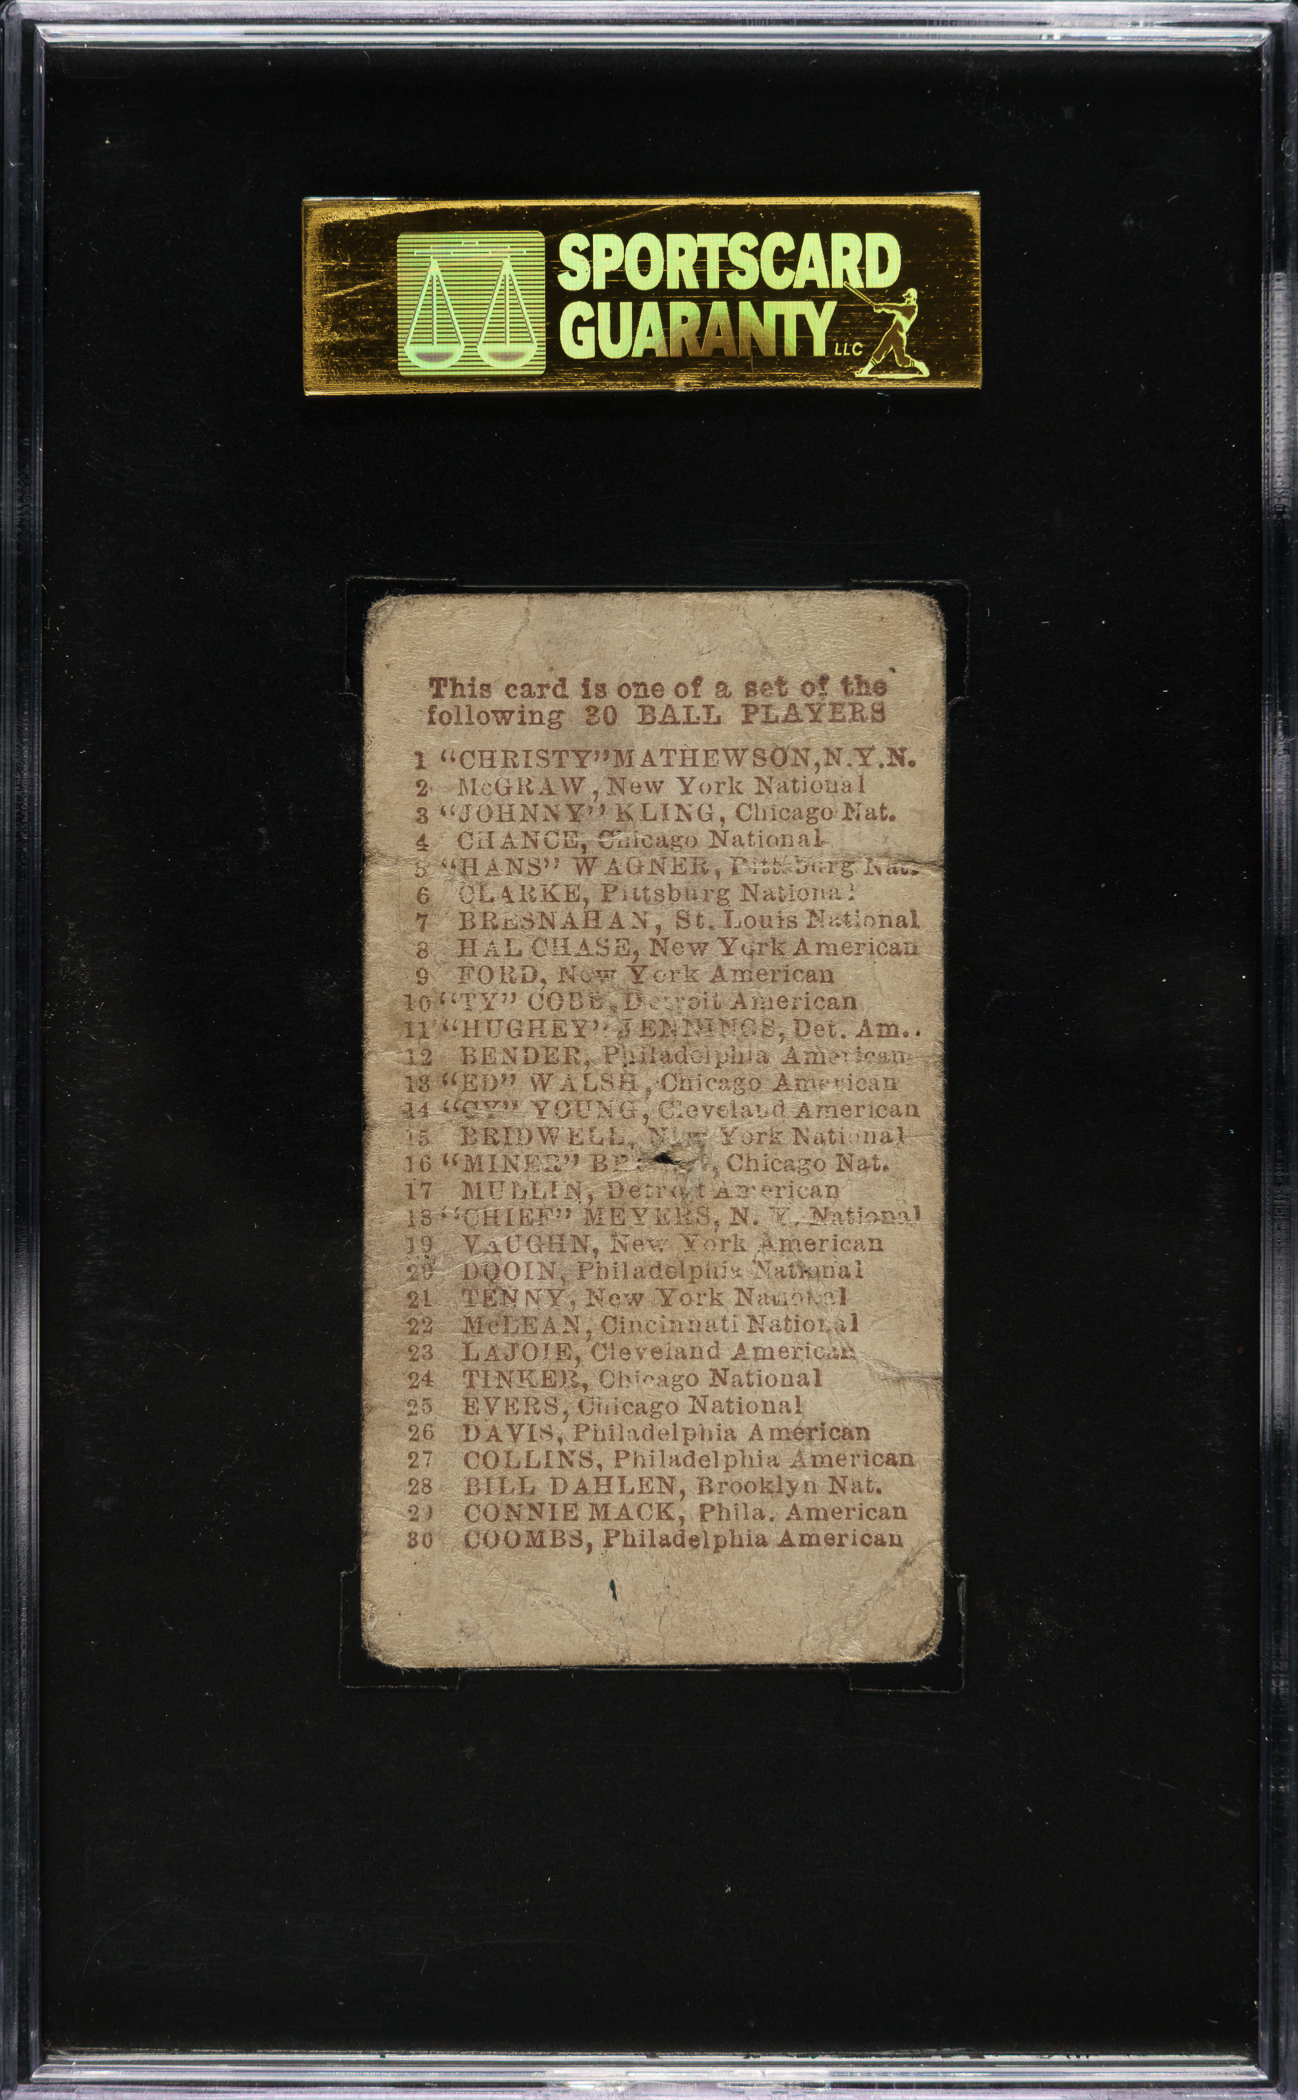 SPORTSCARD
GUARANTY LLC
This card is one of a set of the
following 30 BALL PLAYERS
1 "CHRISTY" MATHEWSON, N.Y.N.
2 McGRAW, New York National
3 "JOHNNY" KLING, Chicago Nat.
4 CHANCE, Chicago National
5 "HANS" WAGNER, Pittsburg Nat.
6 CLARKE, Pittsburg National
7 BRESNAHAN, St. Louis National
8 HAL CHASE, New York American
9 FORD, New York American
10 "TY" COBB, Detroit American
11 "HUGHEY" JENNINGS, Det. Am..
12 BENDER, Philadelphia American
13 "ED" WALSH, Chicago American
14 "CY" YOUNG, Cleveland American
15 BRIDWELL, New York National
16 "MINER" Chicago Nat.
17 MULLIN, Detroit American
18 "CHIEF" MEYERS, N. Y. National
19 VAUGHN, New York American
20 DOOIN, Philadelphia National
21 TENNY, New York National
22 McLEAN, Cincinnati National
23 LAJOIE, Cleveland American
24 TINKER, Chicago National
25 EVERS, Chicago National
26 DAVIS, Philadelphia American
27 COLLINS, Philadelphia American
28 BILL DAHLEN, Brooklyn Nat.
29 CONNIE MACK, Phila. American
30 COOMBS, Philadelphia American